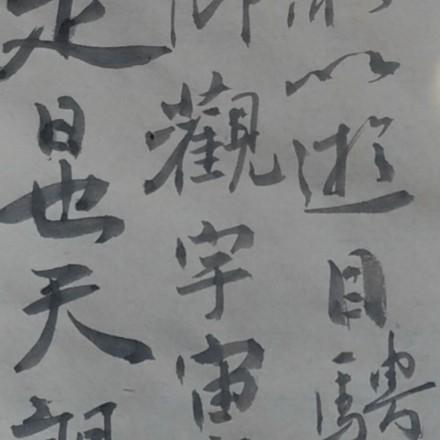 所以遊目騁
仰觀宇宙
是日也天朗